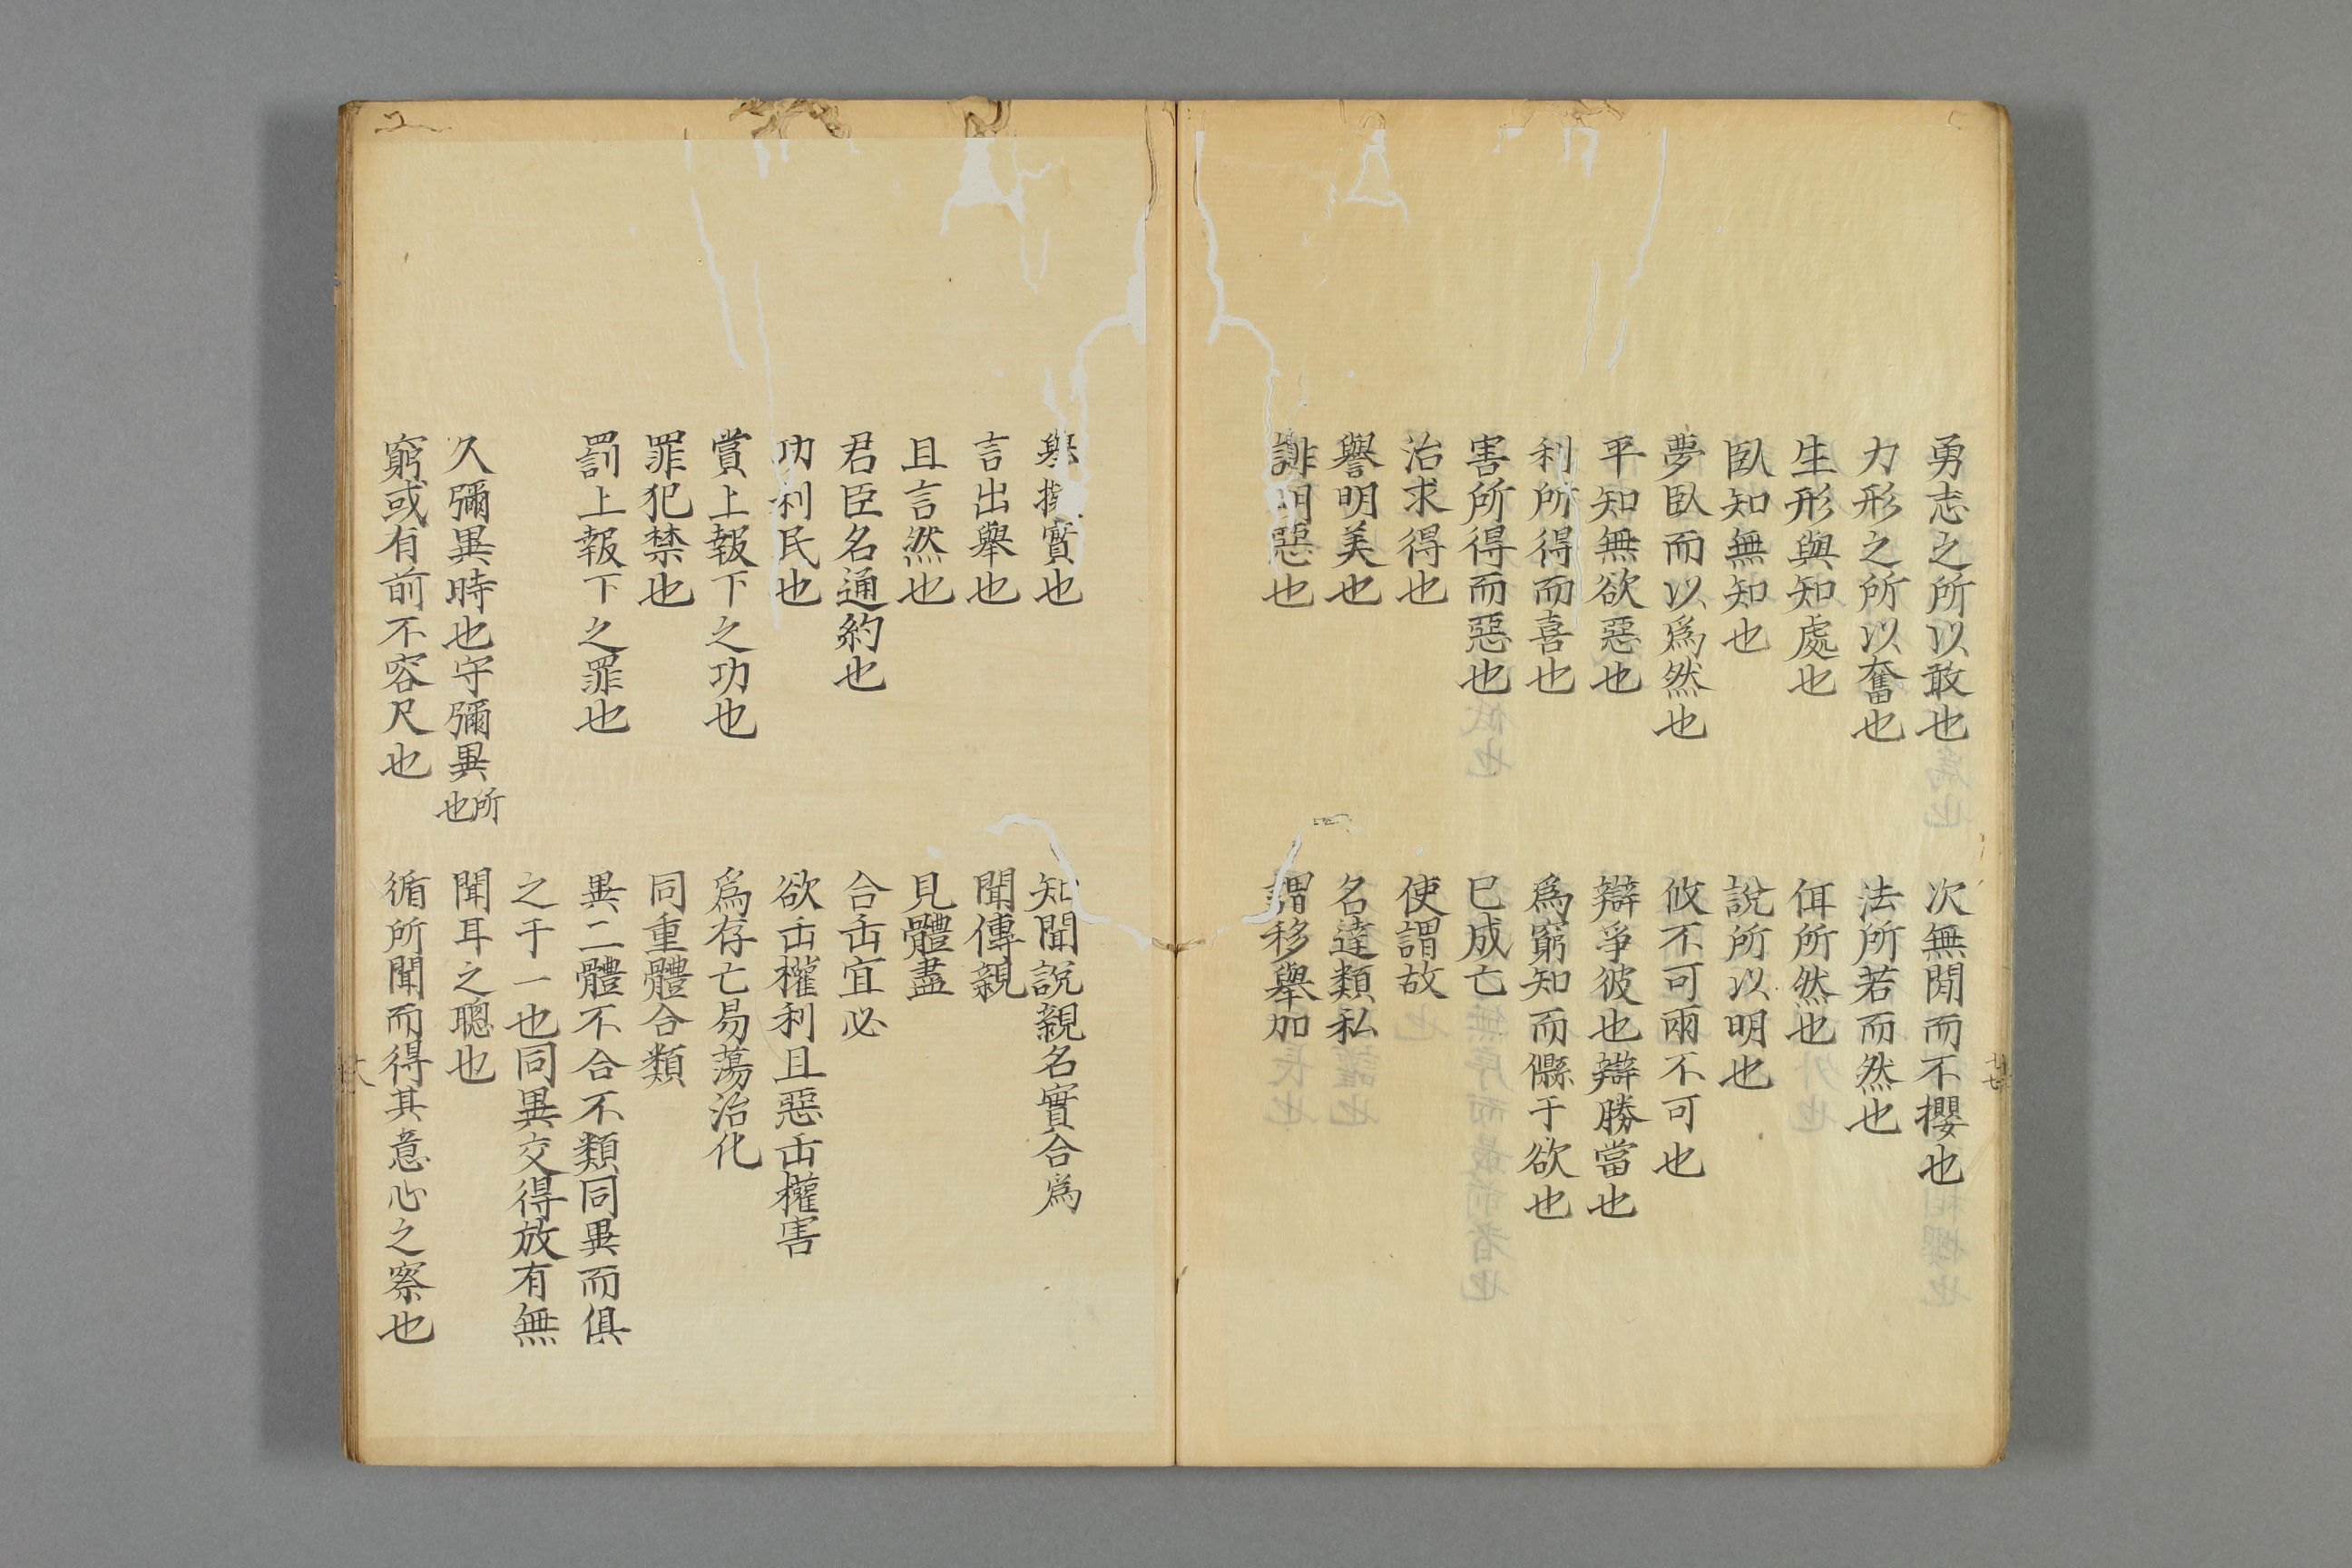 勇志之所以敢也
力形之所以奮也
生形與知處也
臥知無知也
夢臥而以爲然也
平知無欲惡也
利所得而喜也
害所得而惡也
治求得也
譽明美也
誹明惡也
次無閒而不攖也
法所若而然也
佴所然也
說所以明也
攸不可兩不可也
辯爭彼也辯勝當也
爲窮知而𠐴于欲也
已成亡
使謂故
名達類私
謂移舉加
廿七
舉擬實也
言出舉也
且言然也
君臣名通約也
功利民也
賞上報下之功也
罪犯禁也
罰上報下之罪也
久彌異時也守彌異所也
窮或有前不容尺也
知聞說親名實合爲
聞傳親
見體盡
合𠙺宜必
欲𠙺權利且惡𠙺權害
爲存亡易蕩治化
同重體合類
異二體不合不類同異而俱
之于一也同異交得放有無
聞耳之聰也
循所聞而得其意心之察也